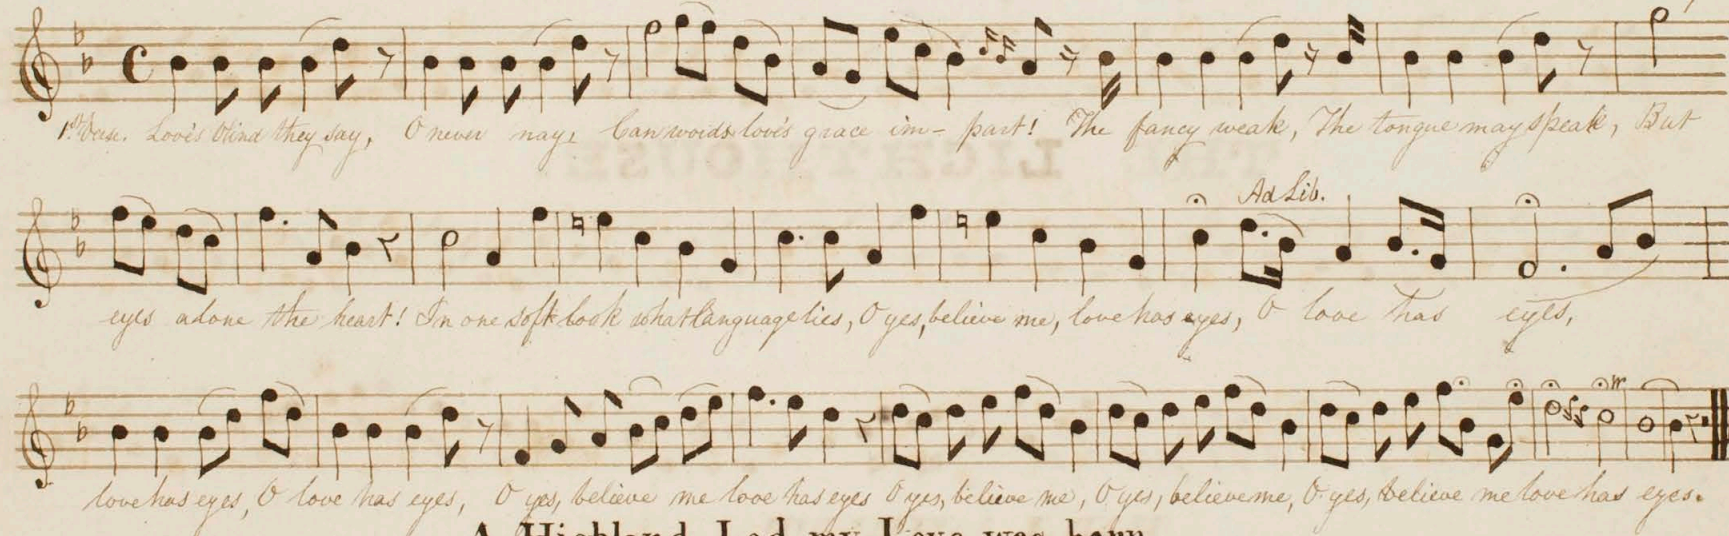 1st Verse. Love's blind they say, O never nay, Can words love's grace im- part! The fancy weak, The tongue may speak, But
Ad Lib.
eyes alone the heart! In one soft look what language lies, O yes, believe me, love has eyes, O love has eyes,
love has eyes, O love has eyes, O yes, believe me love has eyes O yes, believe me, O yes, believe me, O yes, believe me love has eyes.
A Highland Lad my Love was born